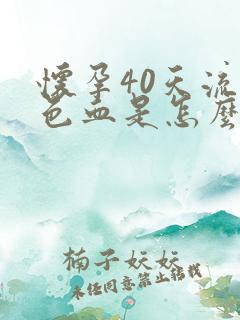 懷孕40天流
色血是怎麼
楠子妏妏
未经同意禁止转载